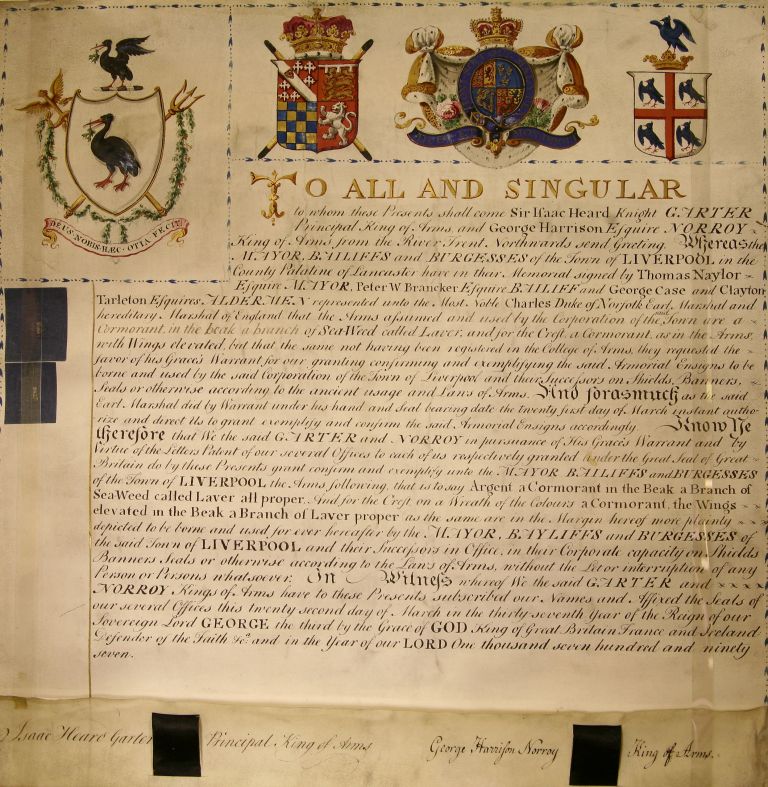 DEUS·NOBIS·HÆC·OTIA FECIT
TO ALL AND SINGULAR
to whom these Presents shall come Sir Isaac Heard Knight GARTER
Principal King of Arms and George Harrison Esquire NORROY
King of Arms from the River Trent Northwards send greeting. Whereas the
MAYOR, BAILIFFS and BURGESSES of the Town of LIVERPOOL in the
County Palatine of Lancaster have in their Memorial signed by Thomas Naylor
Esquire MAYOR, Peter W. Brancker Esquire BAILIFF and George Case and Clayton
Tarleton Esquires ALDERMEN represented unto the Most Noble Charles Duke of Norfolk Earl Marshal and
hereditary Marshal of England that the Arms assumed and used by the Corporation of the said Town are a
Cormorant, in the beak a branch of Sea Weed called Laver, and for the Crest, a Cormorant, as in the Arms,
with Wings elevated, but that the same not having been registered in the College of Arms, they requested the
favor of his Grace's Warrant for our granting confirming and exemplifying the said Armorial Ensigns to be
borne and used by the said Corporation of the Town of Liverpool and their Successors on Shields, Banners,
Seals or otherwise according to the ancient usage and Laws of Arms. And forasmuch as the said
Earl Marshal did by Warrant under his hand and Seal bearing date the twenty first day of March instant autho-
rize and direct Us to grant exemplify and confirm the said Armorial Ensigns accordingly Know Ye
therefore that We the said GARTER and NORROY in pursuance of His Grace's Warrant and by
Virtue of the Letters Patent of our several Offices to each of us respectively granted under the Great Seal of Great
Britain do by these Presents grant confirm and exemplify unto the MAYOR BAILIFFS and BURGESSES
of the Town of LIVERPOOL the Arms following, that is to say Argent a Cormorant in the Beak a Branch of
Sea Weed called Laver all proper, And for the Crest on a Wreath of the Colours a Cormorant, the Wings
elevated in the Beak a Branch of Laver proper as the same are in the Margin hereof more plainly
depicted to be borne and used for ever hereafter by the MAYOR, BAYLIFFS and BURGESSES of
the said Town of LIVERPOOL and their Successors in Office, in their Corporate capacity on Shields
Banners Seals or otherwise according to the Laws of Arms, without the Let or interruption of any
Person or Persons whatsoever. In Witness whereof We the said GARTER and
NORROY Kings of Arms have to these Presents subscribed our Names and Affixed the Seals of
our several Offices this twenty second day of March in the thirty seventh Year of the Reign of our
Sovereign Lord GEORGE the third by the Grace of GOD King of Great Britain France and Ireland
Defender of the Faith &c. and in the Year of our LORD One thousand seven hundred and ninety
seven.
Isaac Heard Garter Principal King of Arms George Harrison Norroy King of Arms.